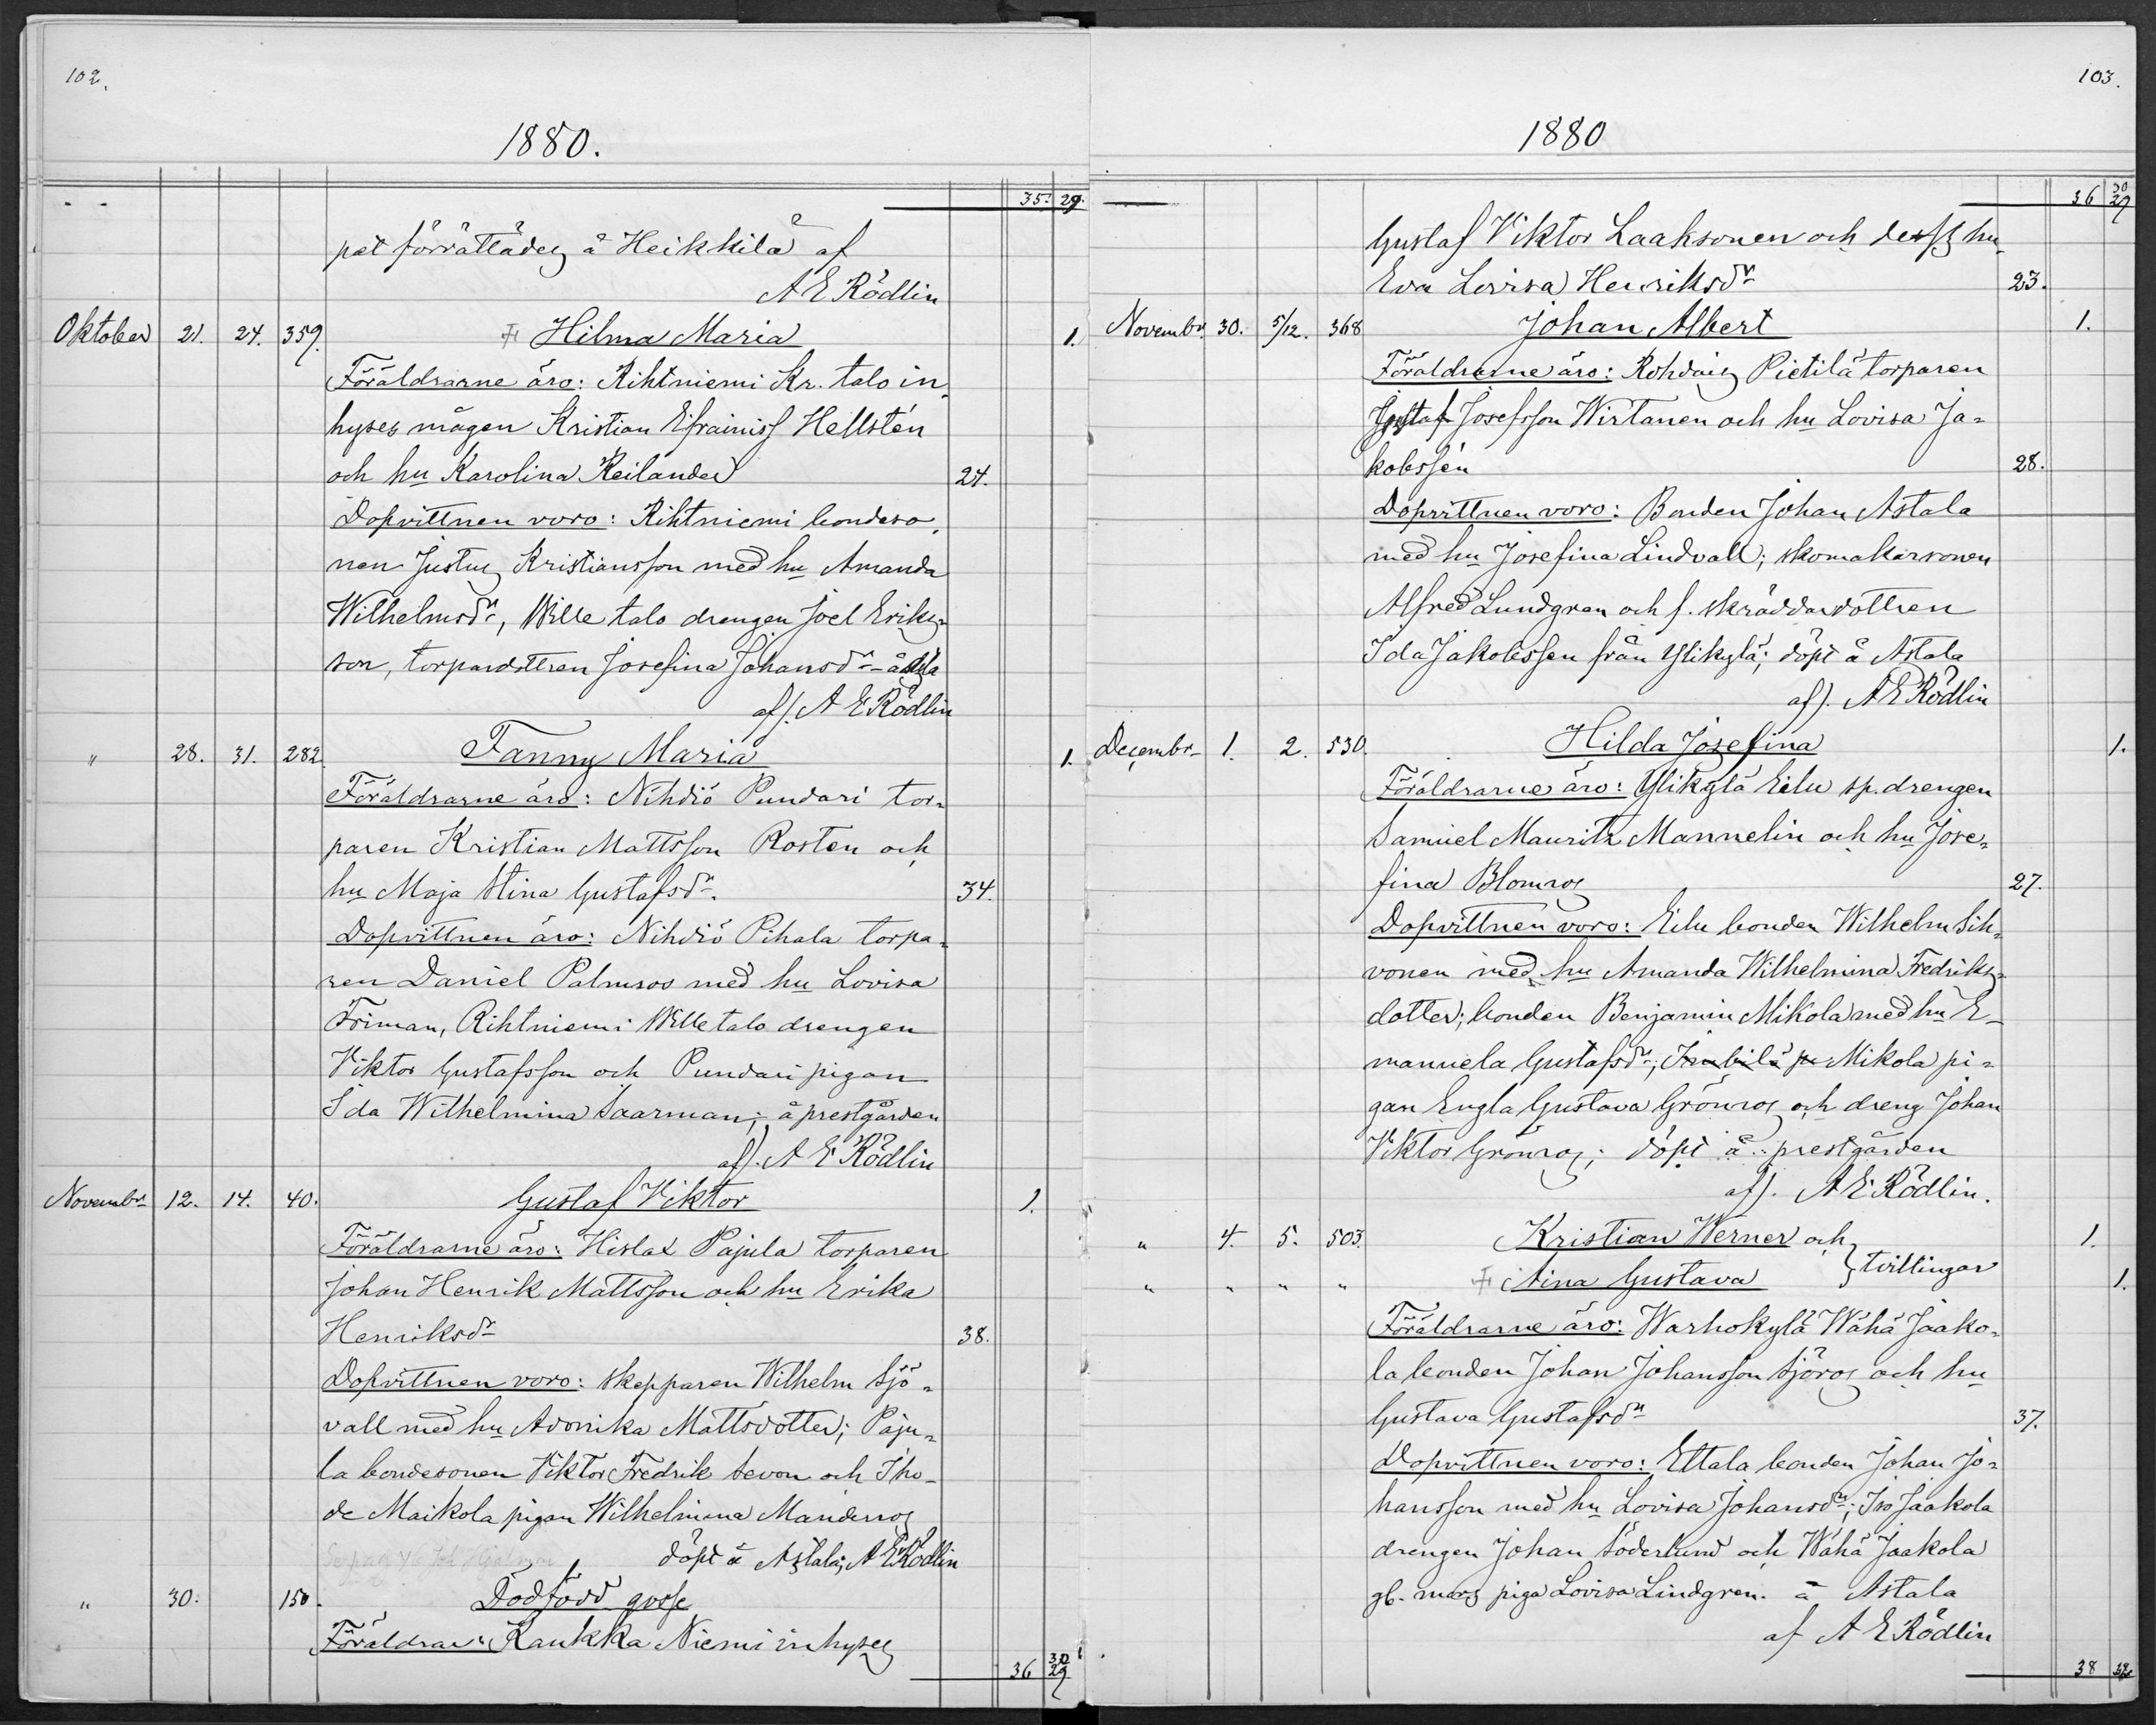 102.
1880.
35. 29.
pet förrättades å Heikkilä af
A E Rödlin
Oktober 21. 24. 359. Hilma Maria 1.
Föräldrarne äro: Rihtniemi Kr. talo in-
hyses mågen Kristian Efraimss Hellstén
och hu Karolina Reilander 24.
Dopvittnen voro: Rihtniemi bondeso-
nen Justus Kristiansson med hu Amanda
Wilhelmsdr, Wille talo drengen Joel Eriks-
son, torpardottren Josefina Johansdr
af). A E Rödlin
" 28. 31. 282. Fanny Maria 1.
Föräldrarne äro: Nihdiö Pundari tor-
paren Kristian Mattsson Rosten och
hu Maja Stina Gustafsdr. 34.
Dopvittnen äro: Nihdiö Pihala torpa-
ren Daniel Palmros med hu Lovisa
Friman, Rihtniemi Wille talo drengen
Viktor Gustafsson och Pundari pigan
Ida Wilhelmina Saarman; å prestgården
af). A E Rödlin
Novembr 12. 14. 40. Gustaf Viktor 1.
Föräldrarne äro: Hislax Pajula torparen
Johan Henrik Mattsson och hu Erika
Henriksdr 38.
Dopvittnen voro: skepparen Wilhelm Sjö-
vall med hu Avonika Mattsdotter; Paju-
la bondesonen Viktor Fredrik Sevon och Iho-
de Maikola pigan Wilhelmina Manderros
döpt å Astala; A E Rödlin
" 30. 150. Dödfödd gosse
Föräldrar: Raukka Niemi inhyses
36 30 29
103.
1880
36 30 29
Gustaf Viktor Laaksonen och dess hu
Eva Lovisa Henriksdr 23.
Novembr. 30. 5/12. 368 Johan Albert 1.
Föräldrarne äro: Rohdais Pietilä torparen
Gustaf Josefsson Wirtanen och hu Lovisa Ja-
kobssén 28.
Dopvittnen voro: Bonden Johan Astala
med hu Josefina Lindvall; skomakarsonen
Alfred Lundgren och f. skräddardottren
Ida Jakobssen från Ylikylä; döpt å Astala
af). A E Rödlin
Decembr 1. 2. 530. Hilda Josefina 1.
Föräldrarne äro: Ylikylä Eilu sp. drengen
Samuel Mauritz Mannelin och hu Jose-
fina Blomros 27.
Dopvittnen voro: Eilu bonden Wilhelm Sih-
vonen med hu Amanda Wilhelmina Fredriks-
dotter; bonden Benjamin Mikola med hu E-
manuela Gustafsdr; Mikola pi-
gan Engla Gustava Grönros och dreng Johan
Viktor Grönros; döpt å prestgården
af). A E Rödlin.
" 4. 5. 503. Kristian Werner och 1.
" " " " Aina Gustava } tvillingar 1.
Föräldrarne äro: Warhokylä Wähä Jaako-
la bonden Johan Johansson Sjöros och hu
Gustava Gustafsdr 37.
Dopvittnen voro: Ettala bonden Johan Jo-
hansson med hu Lovisa Johansdr; Iso Jaakola
drengen Johan Söderlund och Wähä Jaakola
gb. mors piga Lovisa Lindgren. å Astala
af A E Rödlin
38